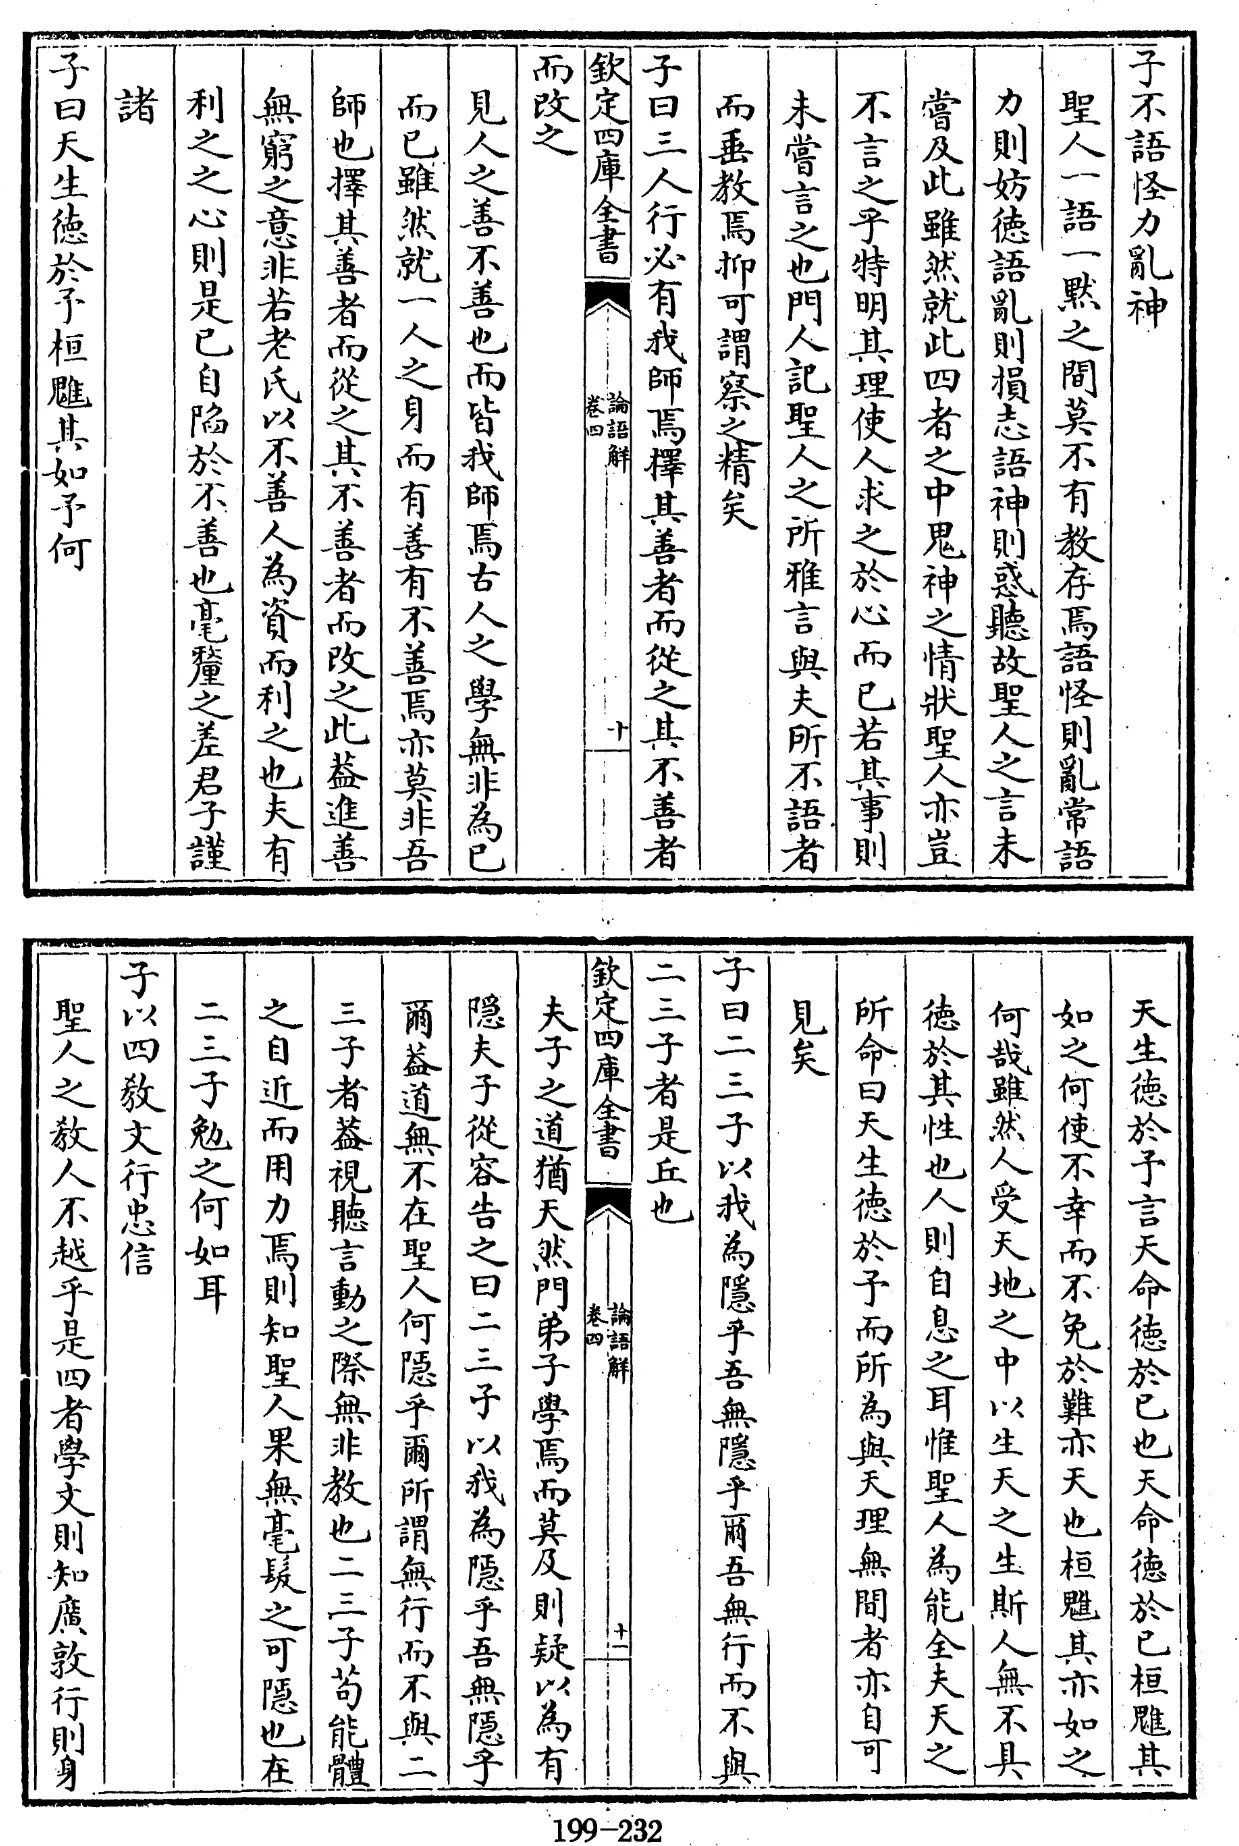 子不語怪力亂神
聖人一語一默之間莫不有教存焉語怪則亂常語
力則妨徳語亂則損志語神則惑聽故聖人之言未
嘗及此雖然就此四者之中鬼神之情狀聖人亦豈
不言之乎特明其理使人求之於心而已若其事則
未嘗言之也門人記聖人之所雅言與夫所不語者
而垂教焉抑可謂察之精矣
子曰三人行必有我師焉擇其善者而從之其不善者
欽定四庫全書
論語解
卷四
十
而改之
見人之善不善也而皆我師焉古人之學無非為已
而已雖然就一人之身而有善有不善焉亦莫非吾
師也擇其善者而從之其不善者而改之此葢進善
無窮之意非若老氏以不善人為資而利之也夫有
利之之心則是已自陷於不善也毫釐之差君子謹
諸
子曰天生徳於予桓魋其如予何
天生徳於予言天命徳於已也天命徳於已桓魋其
如之何使不幸而不免於難亦天也桓魋其亦如之
何哉雖然人受天地之中以生天之生斯人無不具
徳於其性也人則自息之耳惟聖人為能全夫天之
所命曰天生徳於予而所為與天理無間者亦自可
見矣
子曰二三子以我為隱乎吾無隱乎爾吾無行而不與
二三子者是丘也
欽定四庫全書
論語解
卷四
十一
夫子之道猶天然門弟子學焉而莫及則疑以為有
隱夫子從容告之曰二三子以我為隱乎吾無隱乎
爾葢道無不在聖人何隱乎爾所謂無行而不與二
三子者葢視聽言動之際無非教也二三子苟能體
之自近而用力焉則知聖人果無毫髮之可隱也在
二三子勉之何如耳
子以四教文行忠信
聖人之教人不越乎是四者學文則知廣敦行則身
199-232